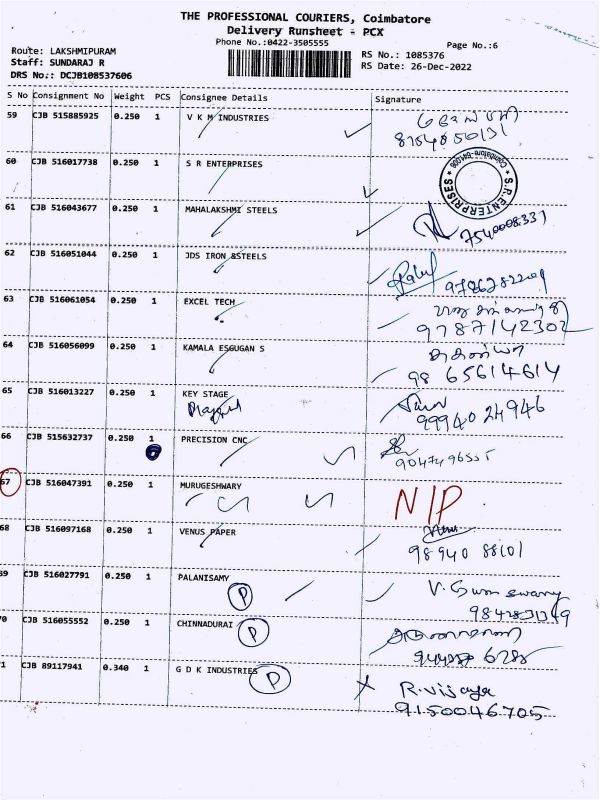 THE PROFESSIONAL COURIERS, Coimbatore
Delivery Runsheet - PCX
Phone No.:0422-3505555
Page No.:6
Route: LAKSHMIPURAM
Staff: SUNDARAJ R
DRS No.: DCJB108537606
RS No.: 1085376
RS Date: 26-Dec-2022
S No Consignment No Weight PCS Consignee Details Signature
59 CJB 515885925 0.250 1 V K M INDUSTRIES
60 CJB 516017738 0.250 1 S R ENTERPRISES
S.R.ENTERPRISES
61 CJB 516043677 0.250 1 MAHALAKSHMI STEELS
7540008331
62 CJB 516051044 0.250 1 JDS IRON &STEELS
Rahul
63 CJB 516061054 0.250 1 EXCEL TECH
9787142302
64 CJB 516056099 0.250 1 KAMALA ESGUGAN S
98 65614614
65 CJB 516013227 0.250 1 KEY STAGE
99940 24946
66 CJB 515632737 0.250 1 PRECISION CNC
9047496555
67 CJB 516047391 0.250 1 MURUGESHWARY N/P
68 CJB 516097168 0.250 1 VENUS PAPER
98940 88101
69 CJB 516027791 0.250 1 PALANISAMY P
70 CJB 516055552 0.250 1 CHINNADURAI P
71 CJB 89117941 0.340 1 G D K INDUSTRIES P R.vijaya
9150046705